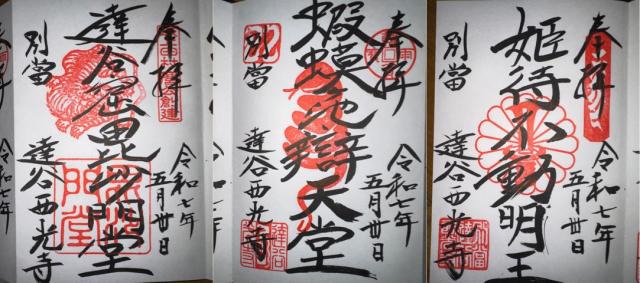 奉拝
令和七年
五月卅日
達谷窟毘沙門堂
別當
達谷西光寺
奉拝
令和七年
五月卅日
蝦蟆ヶ池辯天堂
別當
達谷西光寺
奉拝
令和七年
五月卅日
姫待不動明王
別當
達谷西光寺